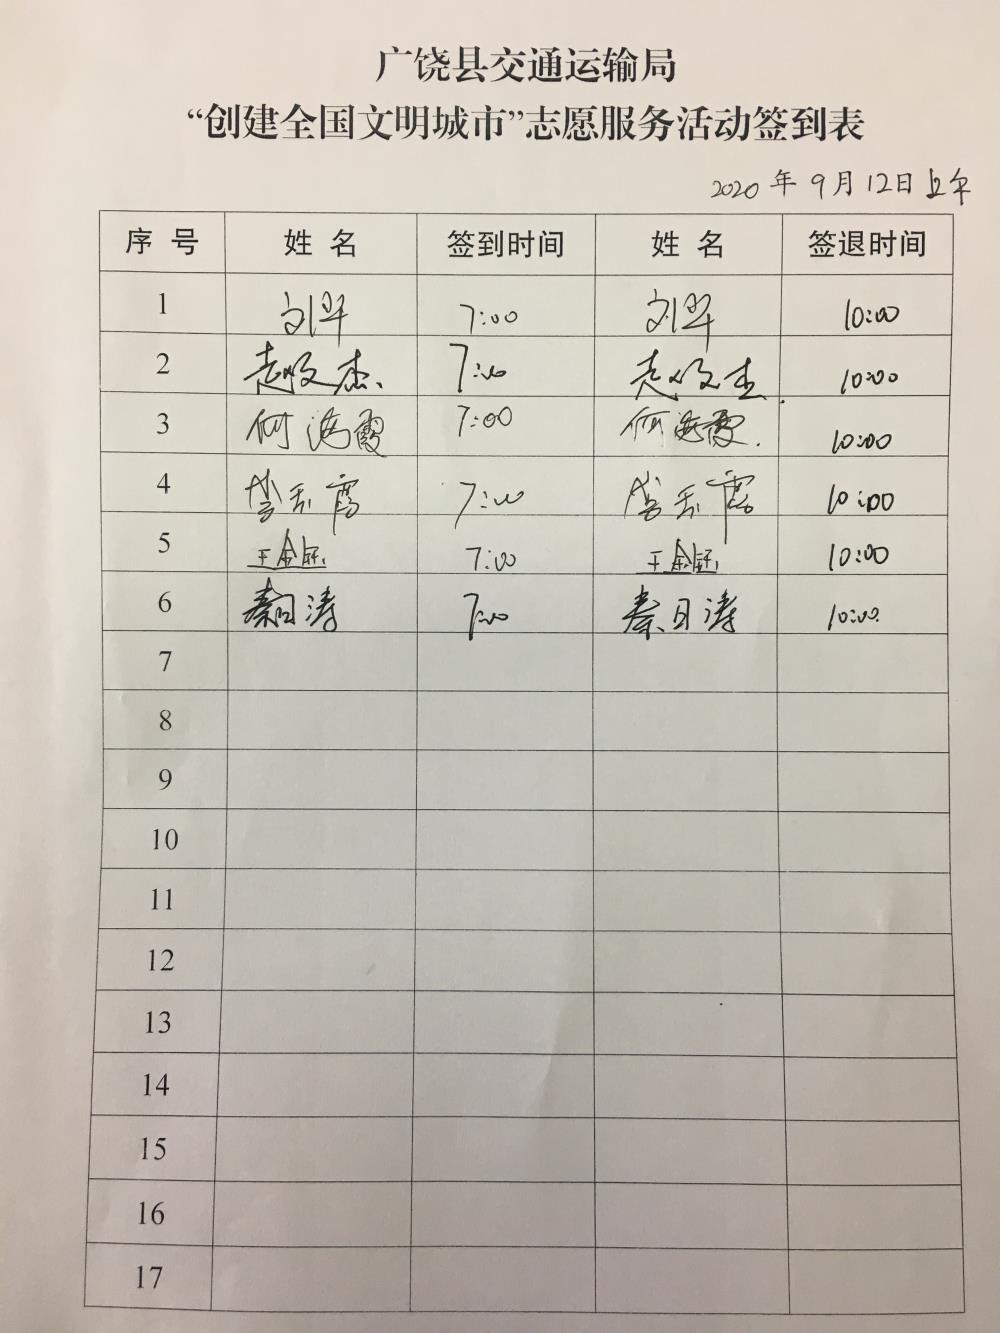 广饶县交通运输局
“创建全国文明城市”志愿服务活动签到表
2020年9月12日上午
序号 姓名 签到时间 姓名 签退时间
1 7:00 10:00
2 7:00 10:00
3 何海霞 7:00 何海霞 10:00
4 7:00 10:00
5 7:00 10:00
6 秦日涛 7:00 秦日涛 10:00
7
8
9
10
11
12
13
14
15
16
17